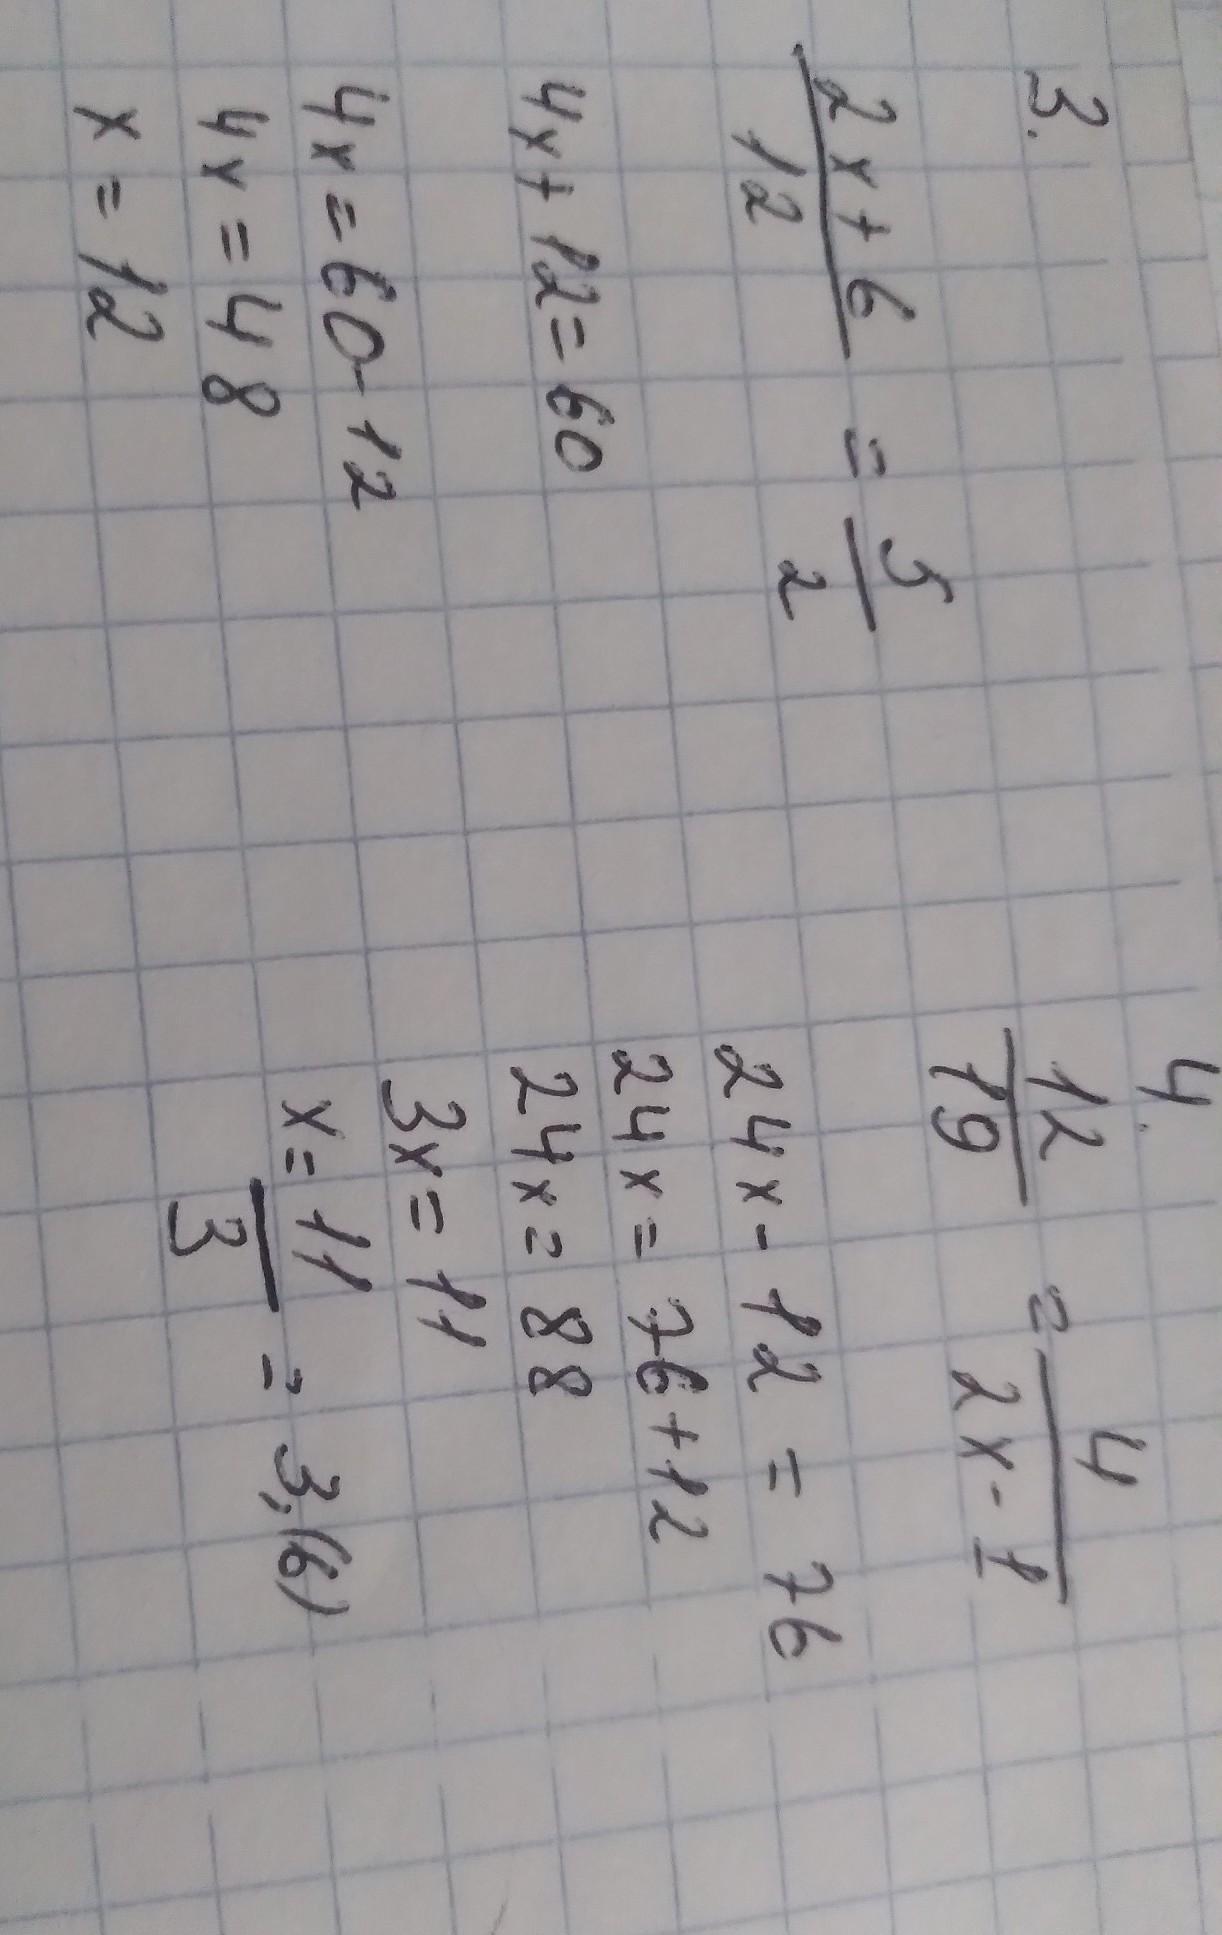 3.
2x+6 = 5
12 2
4x+12=60
4x=60-12
4x=48
x=12
4.
12 = 4
19 2x-1
24x-12=76
24x=76+12
24x=88
3x=11
x=11 = 3,(6)
3